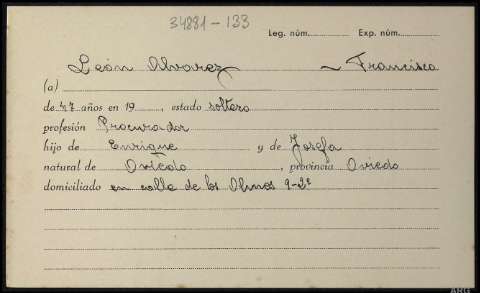 34881-133
Leg. núm. Exp. núm.
León Alvarez ~ Francisco
(a)
de 47 años en 19, estado soltero
profesión Procurador
hijo de Enrique y de Josefa
natural de Oviedo, provincia Oviedo
domiciliado en calle de los Olmos 9-2º
ARG